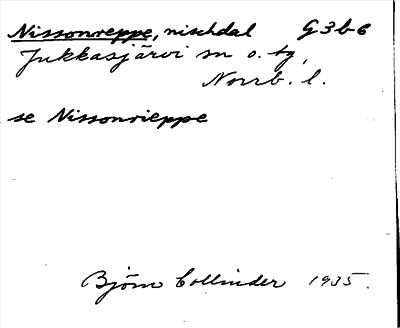 Nissonreppe, nischdal G3b6
Jukkasjärvi sn o. tg,
Norrb. l.
se Nissonrieppe
Björn Collinder 1935.